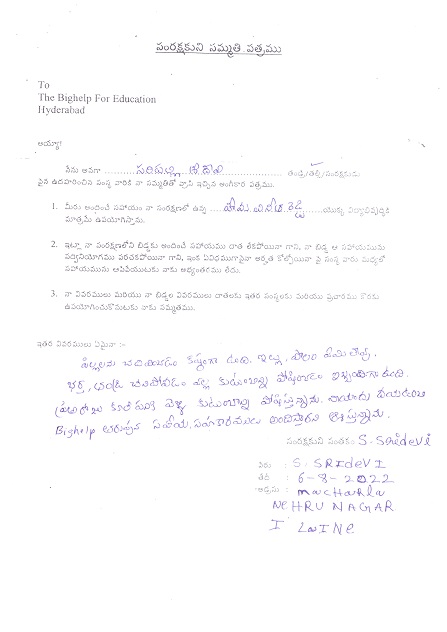 సంరక్షకుని సమ్మతి పత్రము
To
The Bighelp For Education
Hyderabad
అయ్యా!
నేను అనగా ........... సరిపుల్లి శ్రీదేవి ........... తండ్రి/తల్లి/సంరక్షకుడు
పైన ఉదహరించిన సంస్థ వారికి నా సమ్మతితో వ్రాసి ఇచ్చిన అంగీకార పత్రము.
1. మీరు అందించే సహాయం నా సంరక్షణలో ఉన్న ....... రెడ్డి ....... యొక్క విద్యాభివృద్ధికి
మాత్రమే ఉపయోగిస్తాను.
2. ఇట్లా నా సంరక్షణలోని బిడ్డకు అందించే సహాయము దాత లేకపోయినా గాని, నా బిడ్డ ఆ సహాయమును
సద్వినియోగము పరచకపోయినా గాని, ఇంక ఏవిధముగానైనా అర్హత కోల్పోయినా పై సంస్థ వారు మధ్యలో
సహాయమును ఆపివేయుటకు నాకు అభ్యంతరము లేదు.
3. నా వివరములు మరియు నా బిడ్డల వివరములు దాతలకు ఇతర సంస్థలకు మరియు ప్రచారము కొరకు
ఉపయోగించుకొనుటకు నాకు సమ్మతము.
ఇతర వివరములు ఏమైనా :-
పిల్లలను చదివించడం కష్టంగా ఉంది. ఇల్లు, పొలం ఏమి లేవు.
భర్త, చనిపోవడం వల్ల కుటుంబాన్ని పోషించడం ఇబ్బందిగా ఉంది.
ప్రతి రోజు కూలి పనికి వెళ్ళి కుటుంబాన్ని పోషిస్తున్నాను. దయచేసి
Bighelp సహాయ, సహకారములు అందిస్తారని ఆశిస్తున్నాను.
సంరక్షకుని సంతకం S. SRIdeVI
పేరు : S. SRIdeVI
తేదీ : 6-8-2022
అడ్రసు : macharla
NeHRU NAGAR
I LaINe